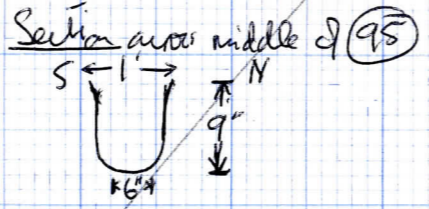 Section across middle of 95
S ← 1' → N
9"
6"